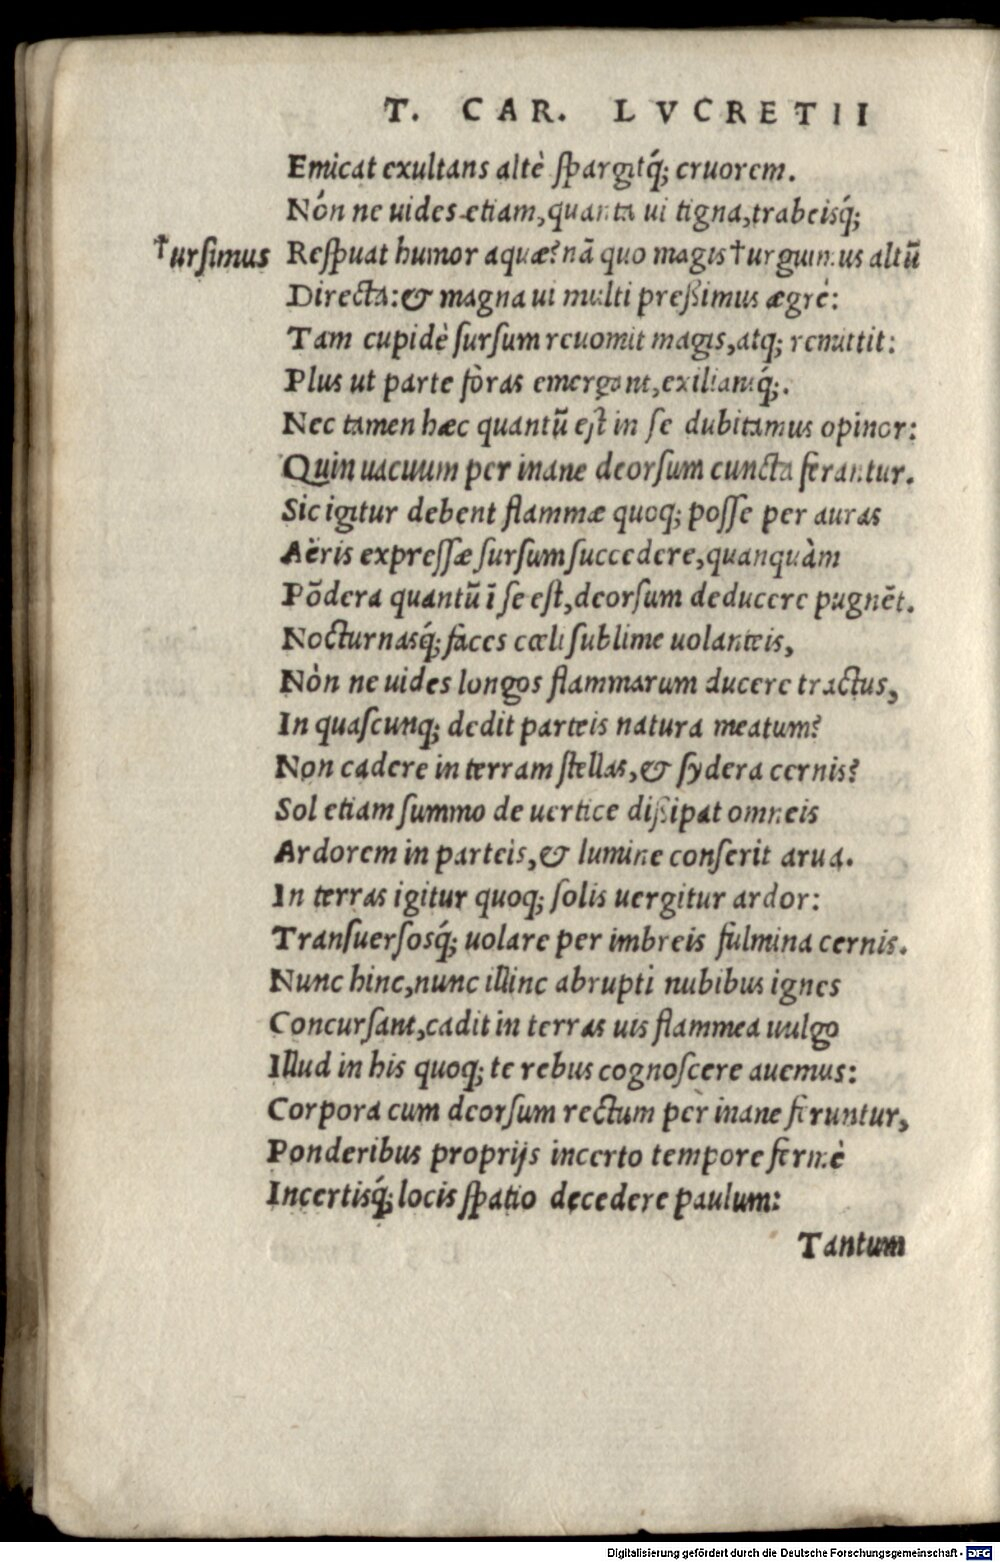 T. CAR. LVCRETII
Emicat exultans altè ſpargitq́; cruorem.
Nón ne uides etiam, quanta ui tigna, trabeisq́;
†urſimus Reſpuat humor aquæ? nã quo magis †urguimus altũ
Directa: & magna ui multi preßimus ægrè:
Tam cupidè ſurſum reuomit magis, atq; remittit:
Plus ut parte fòras emergant, exiliantq́;.
Nec tamen hæc quantũ eſt in ſe dubitamus opinor:
Quin uacuum per inane deorſum cuncta ferantur.
Sic igitur debent flammæ quoq; poſſe per auras
Aëris expreſſæ ſurſum ſuccedere, quanquàm
Põdera quantũ ĩ ſe eſt, deorſum deducere pugnẽt.
Nocturnasq́; faces cœli ſublime uolanteis,
Nòn ne uides longos flammarum ducere tractus,
In quaſcunq; dedit parteis natura meatum?
Non cadere in terram ſtellas, & ſydera cernis?
Sol etiam ſummo de uertice dißipat omneis
Ardorem in parteis, & lumine conſerit arua.
In terras igitur quoq; ſolis uergitur ardor:
Tranſuerſosq́; uolare per imbreis fulmina cernis.
Nunc hinc, nunc illinc abrupti nubibus ignes
Concurſant, cadit in terras uis flammea uulgo
Illud in his quoq; te rebus cognoſcere auemus:
Corpora cum deorſum rectum per inane feruntur,
Ponderibus proprijs incerto tempore fermè
Incertisq́; locis ſpatio decedere paulum:
Tantum
Digitalisierung gefördert durch die Deutsche Forschungsgemeinschaft - DFG